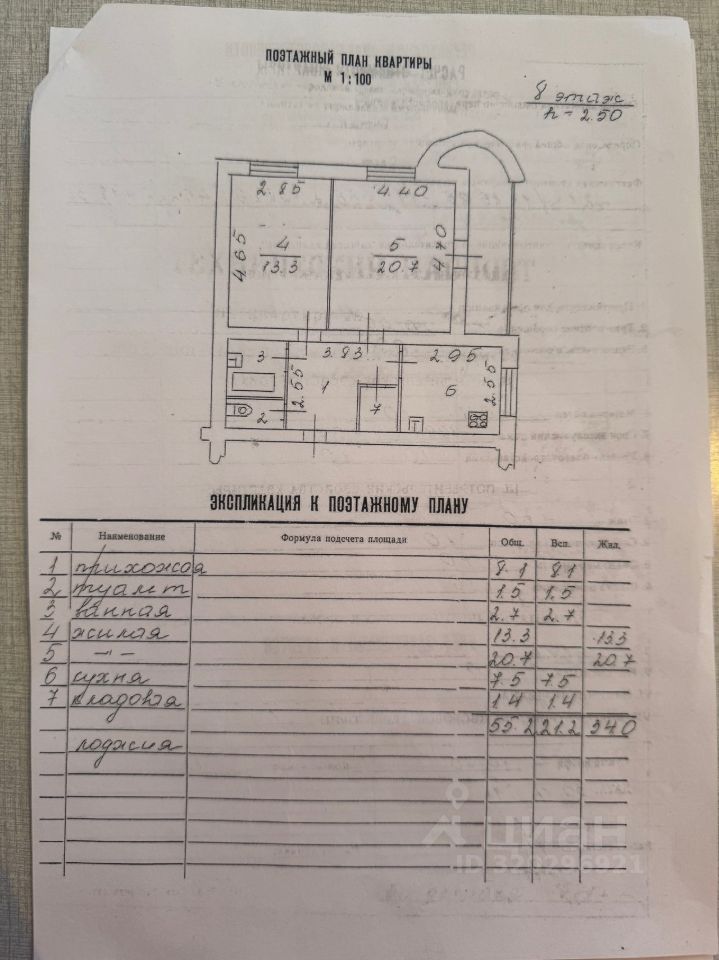 ПОЭТАЖНЫЙ ПЛАН КВАРТИРЫ
М 1:100
8 этаж
h = 2.50
2.85
4.40
4.65
4
13.3
5
20.7
4.70
3
3.83
2.95
2.55
1
7
6
2.55
2
ЭКСПЛИКАЦИЯ К ПОЭТАЖНОМУ ПЛАНУ
№ Наименование Формула подсчета площади Общ. Всп. Жил.
1 прихожая 8.1 8.1
2 туалет 1.5 1.5
3 ванная 2.7 2.7
4 жилая 13.3 13.3
5 —"— 20.7 20.7
6 кухня 7.5 7.5
7 кладовая 1.4 1.4
55.2 21.2 34.0
лоджия
циан
ID 320296921